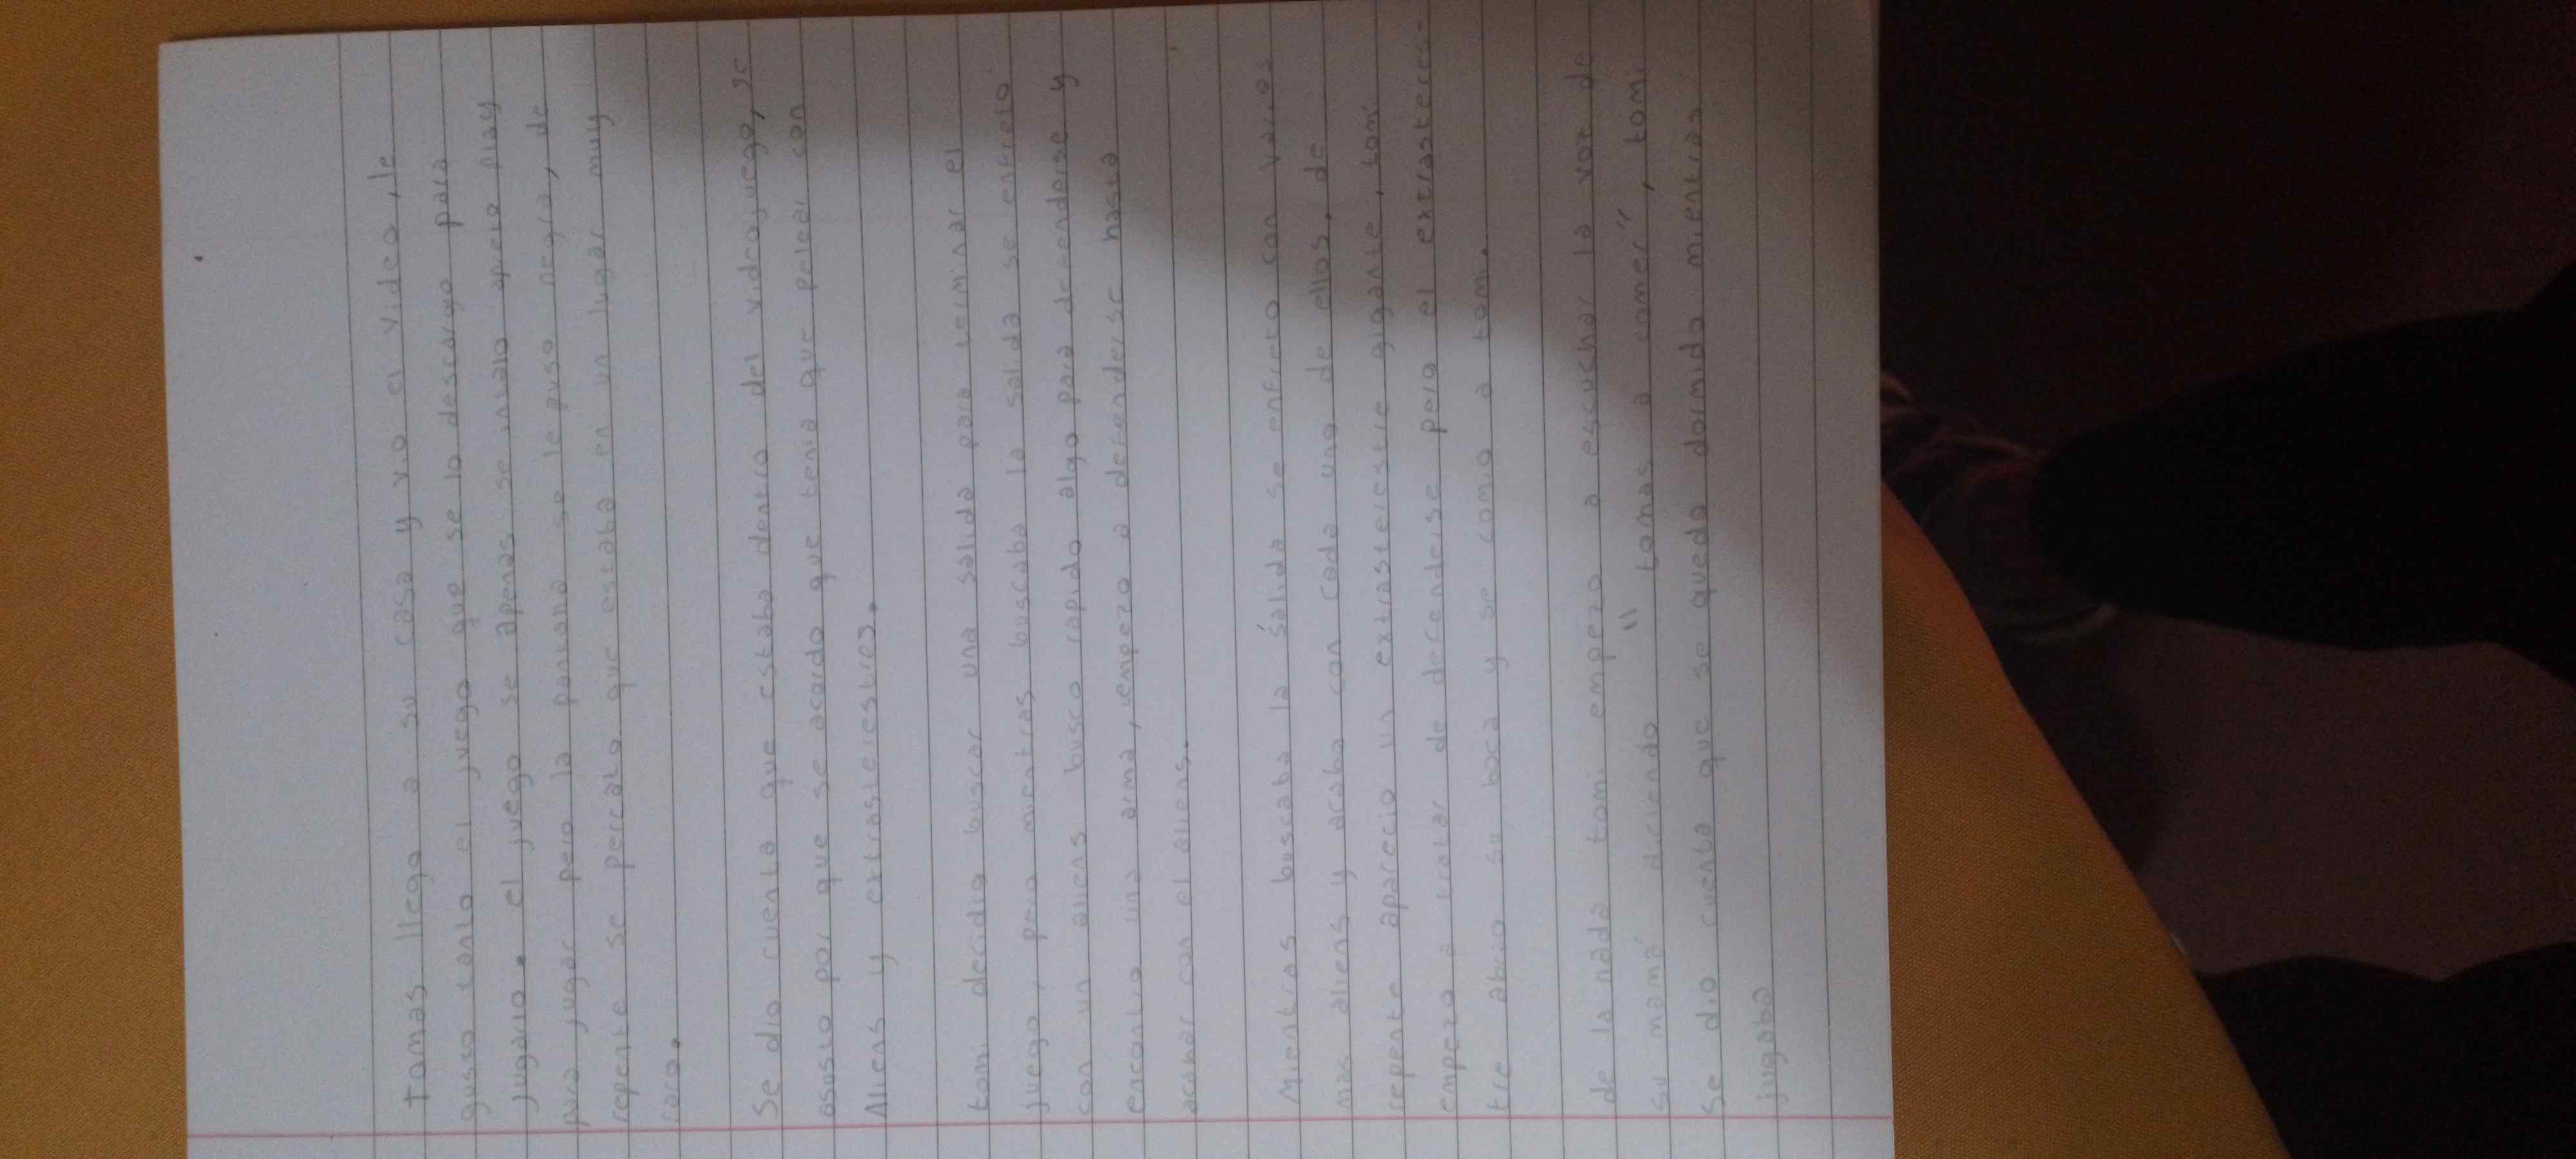 tomas llego a su casa y vio el video, le
gusto tanto el juego que se lo descargo para
jugarlo. el juego se apenas se insalo apreto play
para jugar pero la pantalla se le puso negra, de
repente se percato que estaba en un lugar muy
raro.
Se dio cuenta que estaba dentro del videojuego, se
asusto por que se acordo que tenia que pelear con
Aliens y extrasterestres.
tomi decidio buscar una salida para terminar el
juego, pero mientras buscaba la salida se enfreto
con un aliens busco rapido algo para defenderse y
encontro una arma, empezo a defenderse hasta
acabar con el aliens.
Mientras buscaba la salida se enfreto con varios
mas aliens y acabo con cada uno de ellos, de
repente aparecio un extrasterestre gigante, tomi
empezo a tratar de defenderse pero el extrasteres-
tre abrio su boca y se comio a tomi.
de la nada tomi empezo a escuchar la voz de
su mamá diciendo " tomas a comer", tomi
se dio cuenta que se quedo dormido mientras
jugaba